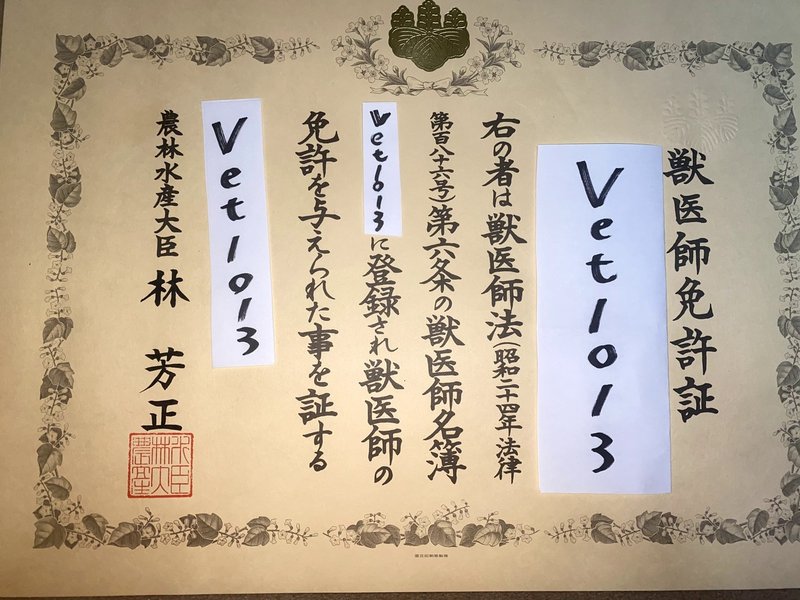 獣医師免許証
Vet1013
右の者は獣医師法(昭和二十四年法律
第百八十六号)第六条の獣医師名簿
Vet1013に登録され獣医師の
免許を与えられた事を証する
Vet1013
農林水産大臣 林 芳正